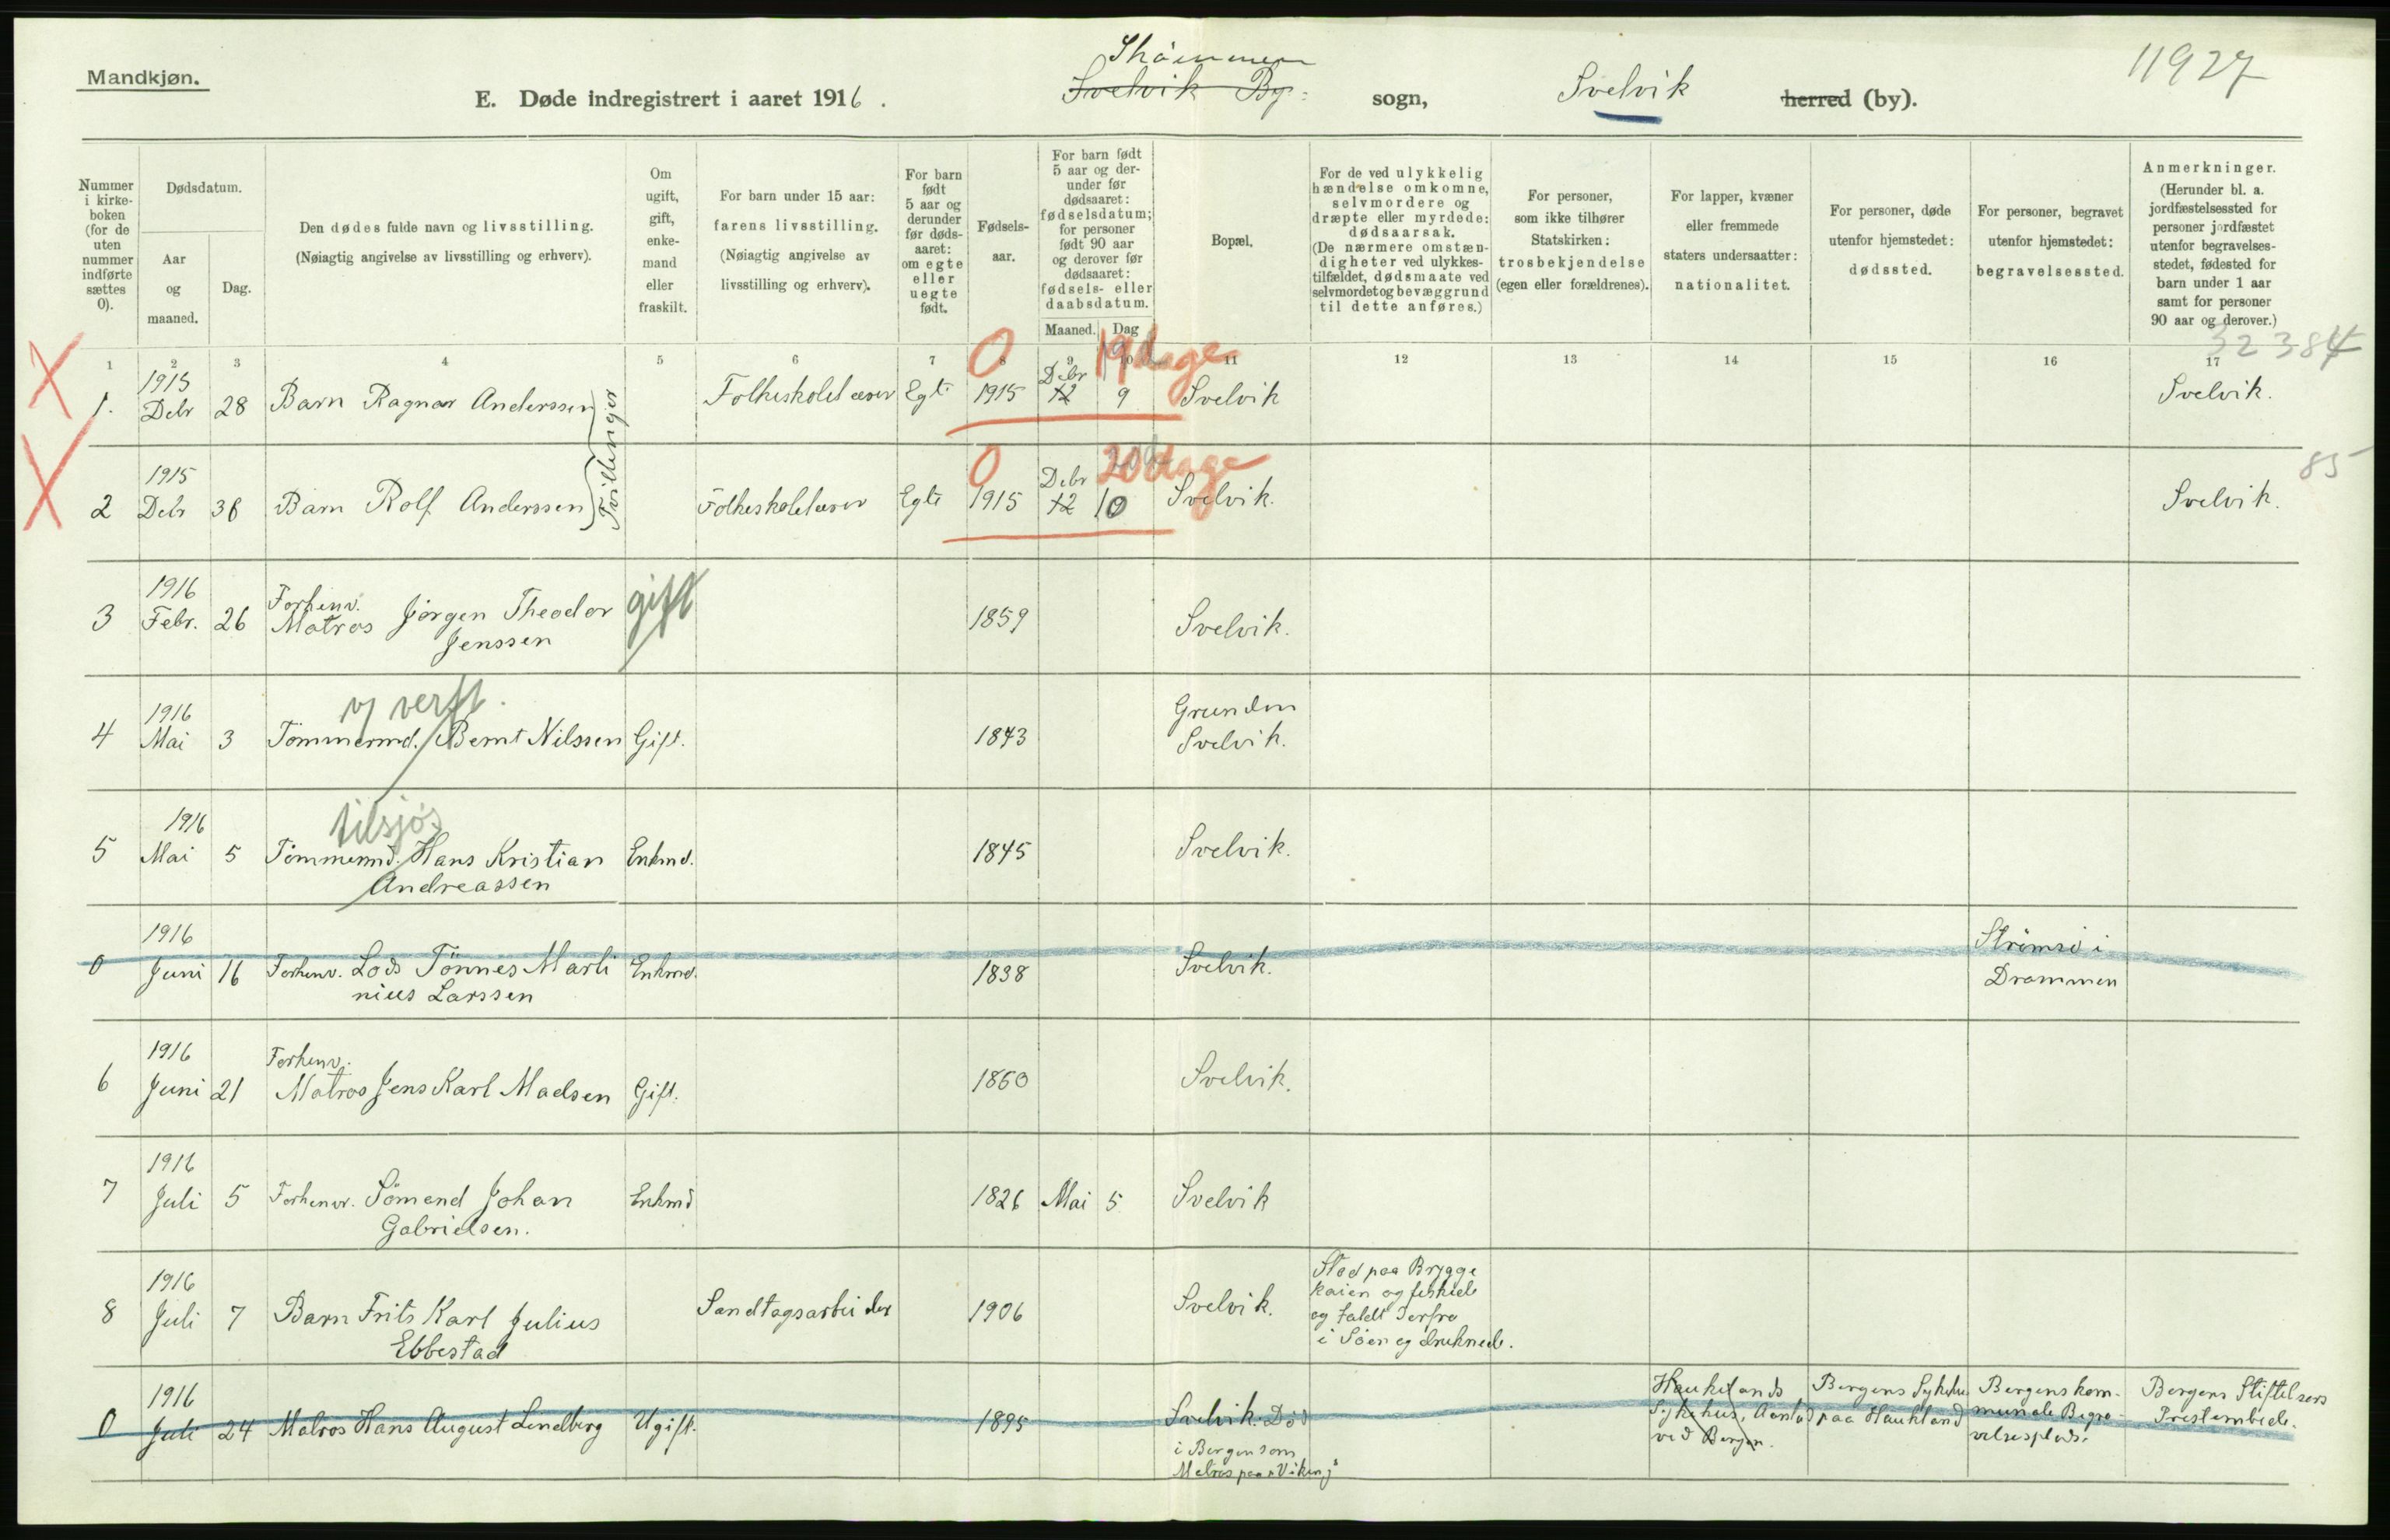 Mandkjøn.
E. Døde indregistrert i aaret 1916.
Svelvik By: sogn,
Svelvik herred (by).
11927
Nummer i kirke-boken (for de uten nummer indførte sættes 0).
Dødsdatum.
Aar og maaned.
Dag.
Den dødes fulde navn og livsstilling.
(Nøiagtig angivelse av livsstilling og erhverv).
Om ugift, gift, enke-mand eller fraskilt.
For barn under 15 aar: farens livsstilling.
(Nøiagtig angivelse av livsstilling og erhverv).
For barn født 5 aar og derunder før døds-aaret: om egte eller uegte født.
Fødsels-aar.
For barn født 5 aar og der-under før dødsaaret: fødselsdatum; for personer født 90 aar og derover før dødsaaret: fødsels- eller daabsdatum.
Maaned. Dag
Bopæl.
For de ved ulykkelig hændelse omkomne, selvmordere og dræpte eller myrdede: dødsaarsak.
(De nærmere omstæn-digheter ved ulykkes-tilfældet, dødsmaate ved selvmordet og bevæggrund til dette anføres.)
For personer, som ikke tilhører Statskirken: trosbekjendelse (egen eller forældrenes).
For lapper, kvæner eller fremmede staters undersaatter: nationalitet.
For personer, døde utenfor hjemstedet: dødssted.
For personer, begravet utenfor hjemstedet: begravelsessted.
Anmerkninger.
(Herunder bl. a. jordfæstelsessted for personer jordfæstet utenfor begravelses-stedet, fødested for barn under 1 aar samt for personer 90 aar og derover.)
32384
1 2 3 4 5 6 7 8 9 10 11 12 13 14 15 16 17
0 19 dage
1. 1915 Debr 28 Barn Ragnar Anderssen Folkeskolelærer Egte 1915 Debr 12 9 Svelvik Svelvik.
Tvillinger
0 20 dage
85
2 1915 Debr 30 Barn Rolf Anderssen Folkeskolelærer Egte 1915 Debr 12 10 Svelvik. Svelvik.
3 1916 Febr. 26 Forhenv. Matros Jørgen Theodor Jenssen gift 1859 Svelvik.
4 1916 Mai 3 Tømmermd. v verft. Bernt Nilssen Gift. 1843 Grunden Svelvik.
5 1916 Mai 5 Tømmermd. tilsjøs Hans Kristian Andreassen Enkmd. 1845 Svelvik.
0 1916 Juni 16 Forhenv. Lods Tönnes Martinius Larssen Enkmd. 1838 Svelvik. Strømsø i Drammen
6 1916 Juni 21 Forhenv. Matros Jens Karl Madsen Gift. 1860 Svelvik.
7 1916 Juli 5 Forhenv. Sömand Johan Gabrielsen. Enkmd 1826 Mai 5 Svelvik
8 1916 Juli 7 Barn Frits Karl Julius Ebbestad Sandtagsarbeider 1906 Svelvik. Stod paa Brygge kaien og fiskede og faldt derfra i Söen og druknede.
0 1916 Juli 24 Matros Hans August Lindberg Ugift. 1895 Svelvik. Död i Bergen som Matros paa "Viking" Haukelands Sykehus, ved Bergen. Bergens Sykehus paa Haukland Bergens kommunale Begravelsesplads. Bergens Stiftelsers Prestembede.